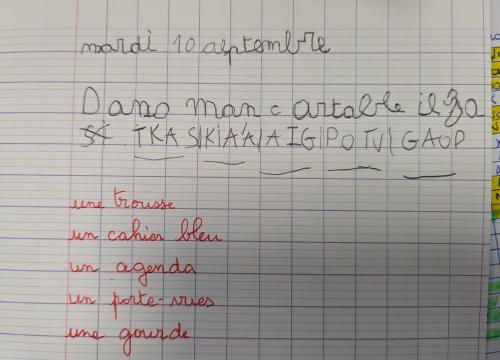 mardi 10 septembre
Dans man cartable il ya
TKAS|KiAA|AIG|POTV|GAOP
une trousse
un cahier bleu
un agenda
un porte-vues
une gourde